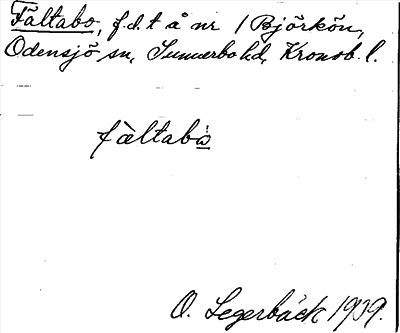 Fältabo, f.d. t å nr 1 Björkön,
Odensjö sn, Sunnerbo hd, Kronob. l.
fàltabò
O. Segerbäck 1939.